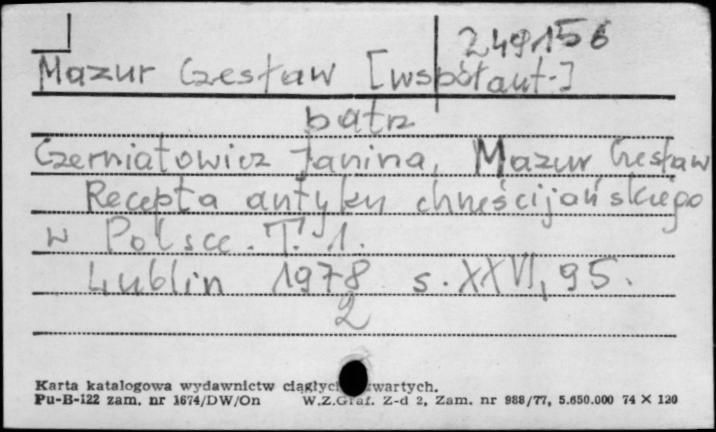 249156
Mazur Czesław [współaut.]
patrz
Czerniatowicz Janina, Mazur Czesław
Recepta antyku chrześcijańskiego
w Polsce. T. 1.
Lublin 1978 s. XXVI, 95.
2
Karta katalogowa wydawnictw ciągłych wartych.
Pu-B-122 zam. nr 1674/DW/On W.Z.Graf. Z-d 2, Zam. nr 988/77, 5.650.000 74 X 120